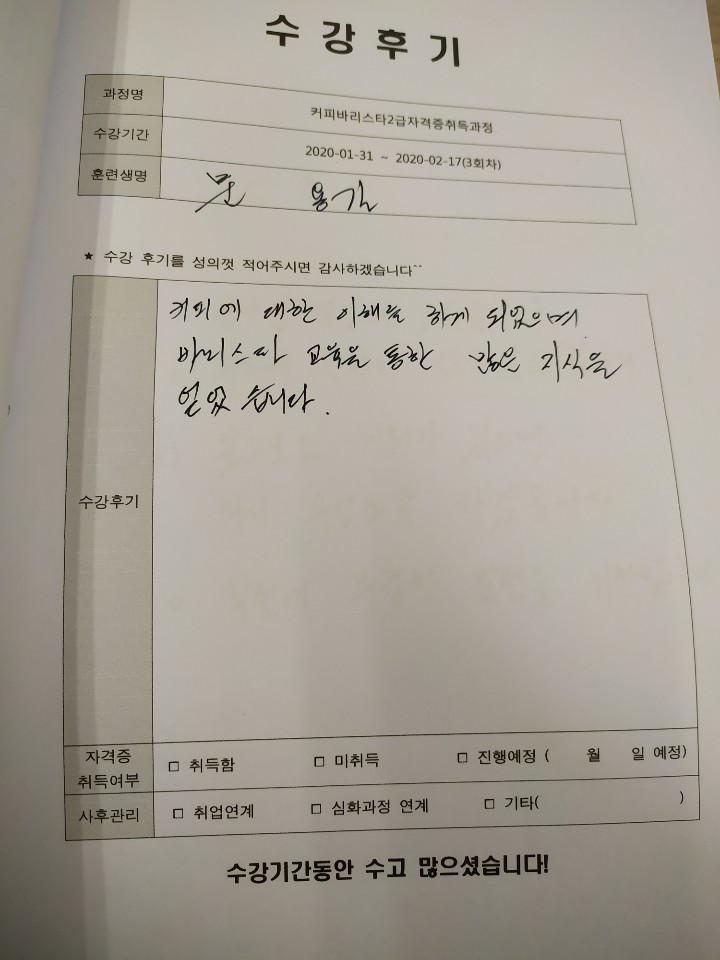 수강후기
과정명 커피바리스타2급자격증취득과정
수강기간 2020-01-31 ~ 2020-02-17(3회차)
훈련생명 문 용길
★ 수강 후기를 성의껏 적어주시면 감사하겠습니다^^
수강후기
커피에 대한 이해를 하게 되었으며
바리스타 교육을 통한 많은 지식을
얻었습니다.
자격증
취득여부 □ 취득함 □ 미취득 □ 진행예정 ( 월 일 예정)
사후관리 □ 취업연계 □ 심화과정 연계 □ 기타( )
수강기간동안 수고 많으셨습니다!